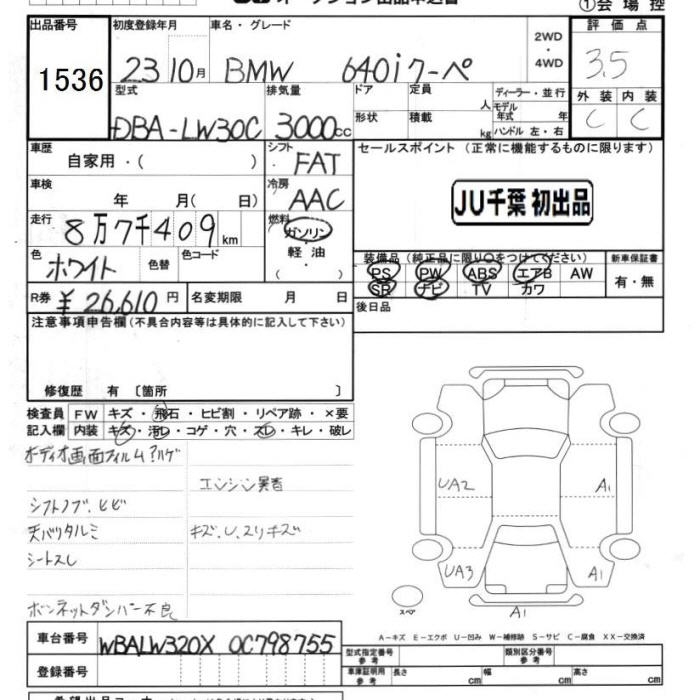 ①会場控
出品番号 初度登録年月 車名・グレード 評価点
1536 23 10月 BMW 640iクーペ 2WD・4WD 3.5
型式 排気量 ドア 定員 人 ディーラー・並行 外装 内装
DBA-LW30C 3000cc 形状 積載 kg モデル年式 年 ハンドル 左・右 C C
車歴 自家用・( ) シフト FAT セールスポイント (正常に機能するものに限ります)
車検 年 月( 日) 冷房 AAC JU千葉 初出品
走行 8万7千409km 燃料 ガソリン・軽油・( )
色 ホワイト 色替 色コード 装備品 (純正品に限り○をつけてください) 新車保証書
PS PW ABS エアB AW 有・無
R券 ¥26,610円 名変期限 月 日 SR ナビ TV カワ
後日品
注意事項申告欄(不具合内容等は具体的に記入して下さい)
修復歴 有 〔箇所 〕
検査員 FW キズ・飛石・ヒビ割・リペア跡・×要
記入欄 内装 キズ・汚レ・コゲ・穴・スレ・キレ・破レ
オーディオ画面フィルムハゲ
エンジン異音
シフトノブ、ヒビ
天バリタルミ キズ、U、スリキズ
シートスレ
ボンネットダンパー不良
UA2 A1
UA3 A1
スペア A1
A-キズ E-エクボ U-凹み W-補修跡 S-サビ C-腐食 XX-交換済
車台番号 WBALW320X 0C798755
型式指定番号 参考 類別区分番号 参考
登録番号 車庫証明用 参考 長さ cm 幅 cm 高さ cm